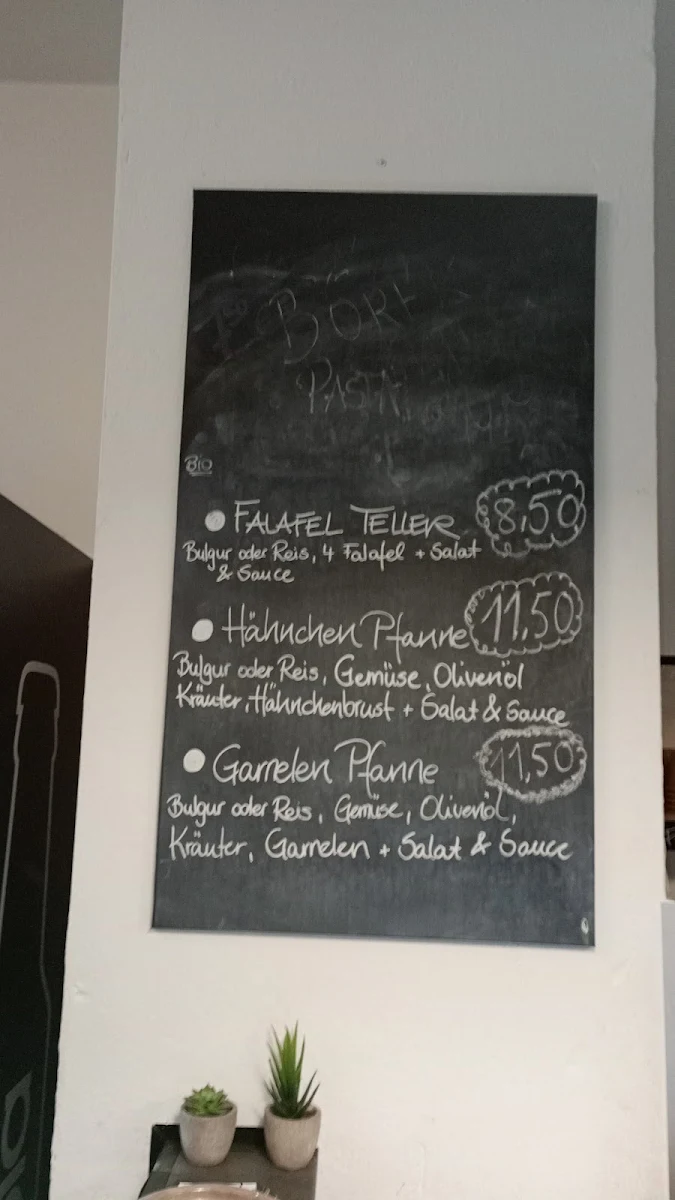 BÖR
PASTA
BIO
FALAFEL TELLER 8,50
Bulgur oder Reis, 4 Falafel + Salat
& Sauce
Hähnchen Pfanne 11,50
Bulgur oder Reis, Gemüse, Olivenöl
Kräuter, Hähnchenbrust + Salat & Sauce
Garnelen Pfanne 11,50
Bulgur oder Reis, Gemüse, Olivenöl,
Kräuter, Garnelen + Salat & Sauce